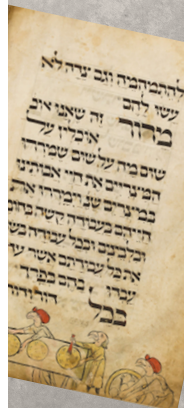 להתמהמה וגם צדה לא
עשו להם
מרור זה שאנו או
אוכלין על
שום מה על שום שמררו
המצריים את חיי אבותינו
במצרים שנ וימררו את
חייהם בעבודה קשה
ובלבינים ובכל עבודה
את כל עבודתם אשר
עבדו בהם בפרך
בכל דור ודור